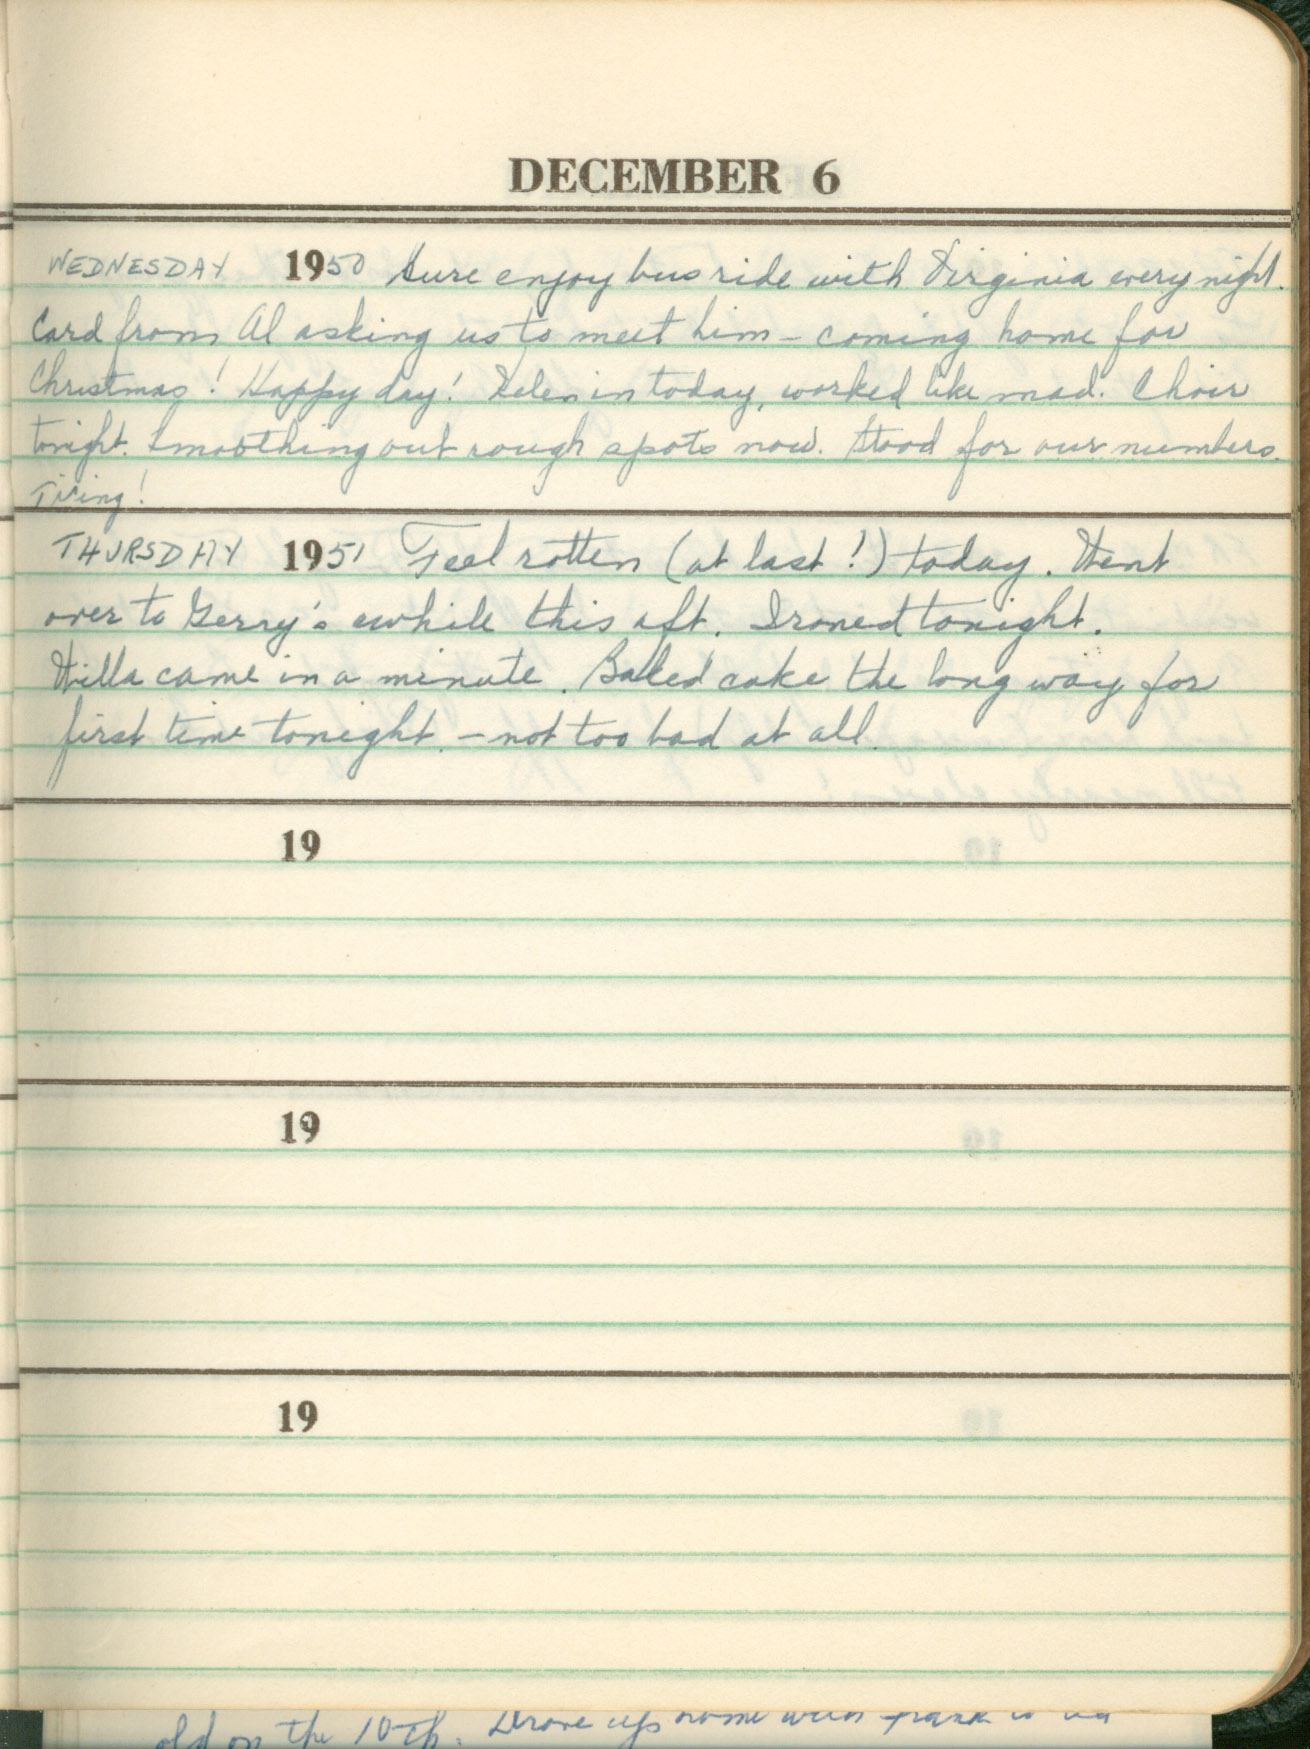 DECEMBER 6
WEDNESDAY 1950 Sure enjoy bus ride with Virginia every night.
Card from Al asking us to meet him - coming home for
Christmas! Happy day! Helen in today, worked like mad. Choir
tonight. Smoothing out rough spots now. Stood for our numbers.
Tiring!
THURSDAY 1951 Feel rotten (at last!) today. Went
over to Gerry's awhile this aft. Ironed tonight.
Willa came in a minute. Baked cake the long way for
first time tonight - not too bad at all.
19
19
19
old on the 10th. Drove up home with Frank